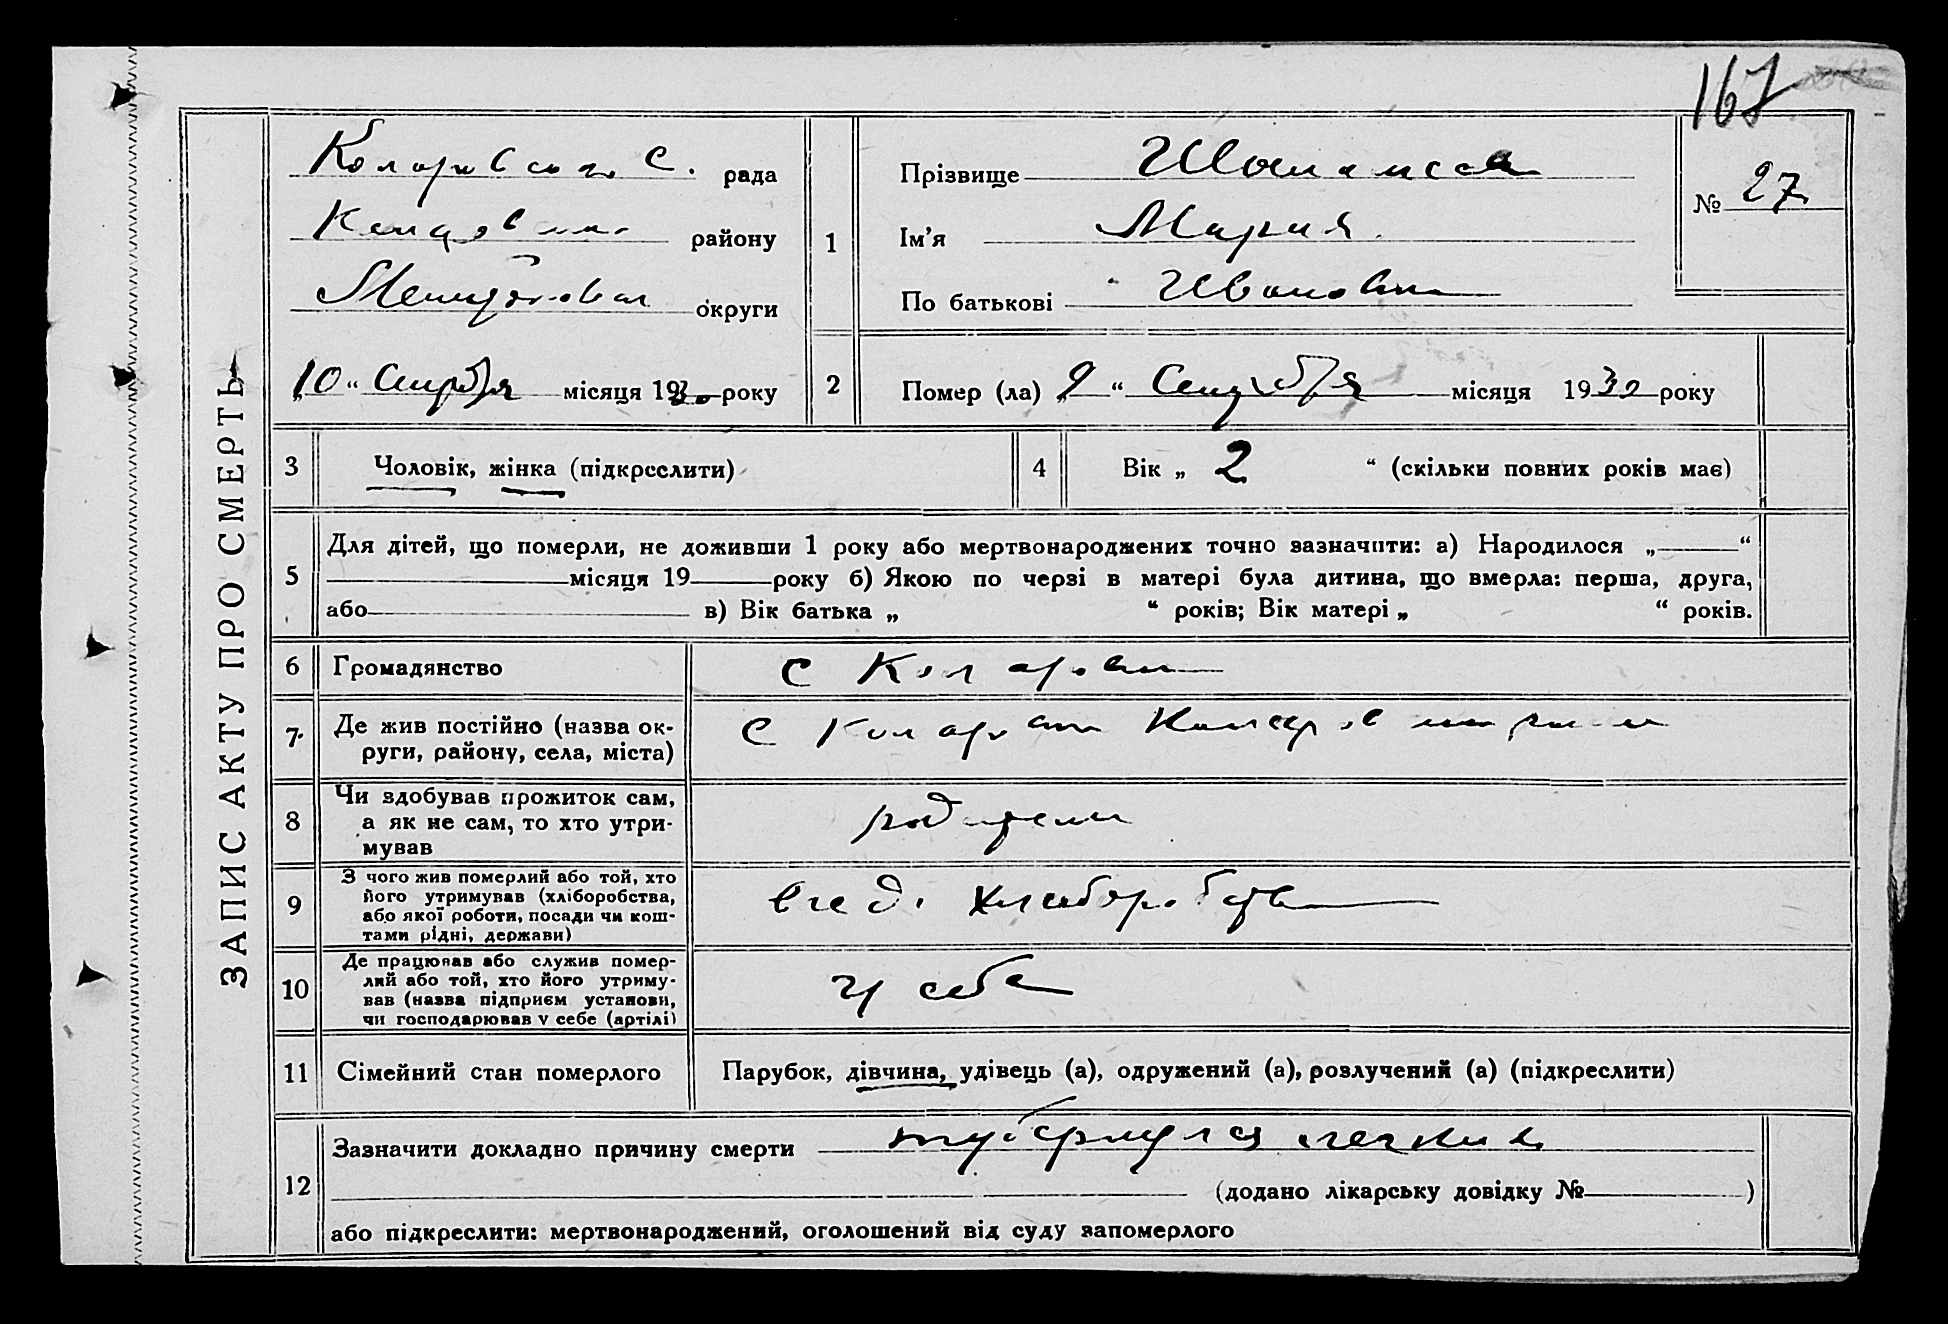 167
ЗАПИС АКТУ ПРО СМЕРТЬ
Коларовская С. рада
району
округи
„10“ Сентября місяця 1930 року
1
Прізвище
Ім’я Мария
По батькові Ивановна
№ 27
2
Помер (ла) „9“ Сентября місяця 1930 року
3 Чоловік, жінка (підкреслити)
4 Вік „ 2 “ (скільки повних років має)
5
Для дітей, що померли, не доживши 1 року або мертвонароджених точно зазначити: а) Народилося „ “
місяця 19 року б) Якою по черзі в матері була дитина, що вмерла: перша, друга,
або в) Вік батька „ “ років; Вік матері „ “ років.
6 Громадянство с Коларовка
7 Де жив постійно (назва ок-
руги, району, села, міста)
с Коларовка
8 Чи здобував прожиток сам,
а як не сам, то хто утри-
мував
родители
9 З чого жив померлий або той, хто
його утримував (хліборобства,
або якої роботи, посади чи кош-
тами рідні, держави)
хлеборобства
10 Де працював або служив помер-
лий або той, хто його утриму-
вав (назва підприєм установи,
чи господарював у себе (артілі)
у себе
11 Сімейний стан померлого Парубок, дівчина, удівець (а), одружений (а), розлучений (а) (підкреслити)
12 Зазначити докладно причину смерти туберкулез легких
(додано лікарську довідку № )
або підкреслити: мертвонароджений, оголошений від суду запомерлого